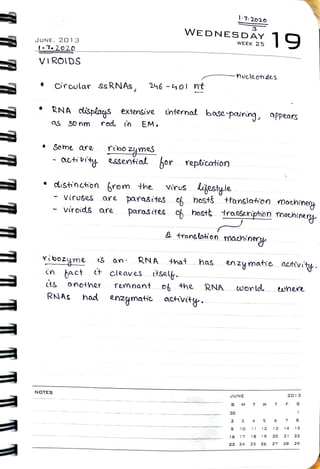 1-7-2020
3
JUNE, 2013 WEDNESDAY 19
WEEK 25
1-7-2020
VIROIDS
nucleotides
• Circular ssRNAs, 246-401 nt
• RNA displays extensive internal base-pairing, appears
as 50nm rod in EM.
• Some are ribozymes
- activity essential for replication
• distinction from the virus lifestyle
- viruses are parasites of host's translation machinery
- viroids are parasites of host's transcription machinery
& translation machinery
ribozyme is an RNA that has enzymatic activity.
in fact it cleaves itself.
its another remnant of the RNA world where
RNAs had enzymatic activity.
NOTES
JUNE 2013
S M T W T F S
30 1
2 3 4 5 6 7 8
9 10 11 12 13 14 15
16 17 18 19 20 21 22
23 24 25 26 27 28 29